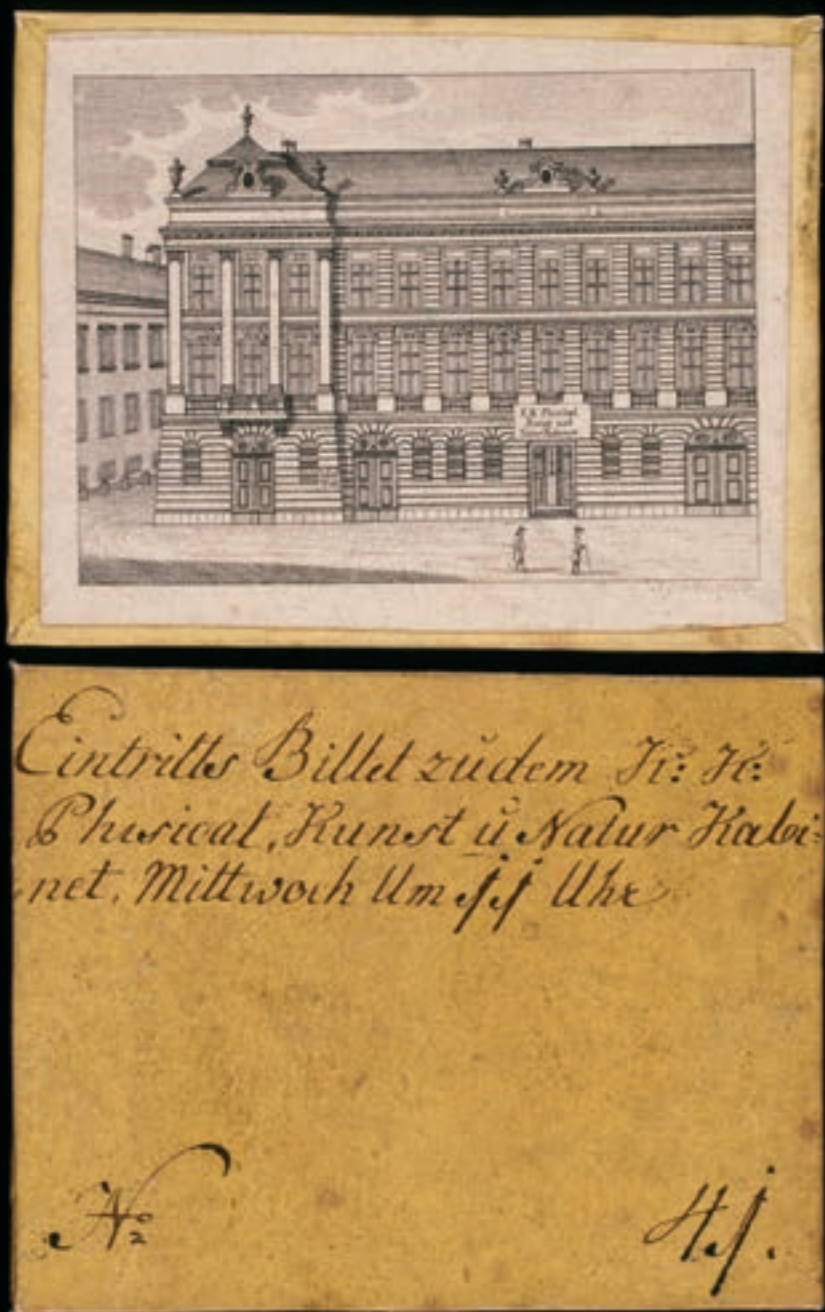 K.K. Phisikal.
Kunst und
Eintritts Billet zŭdem K: K:
Phisical, Kunst ŭ Natur Kabi=
net, Mittwoch Um 11 Uhr
No 41.